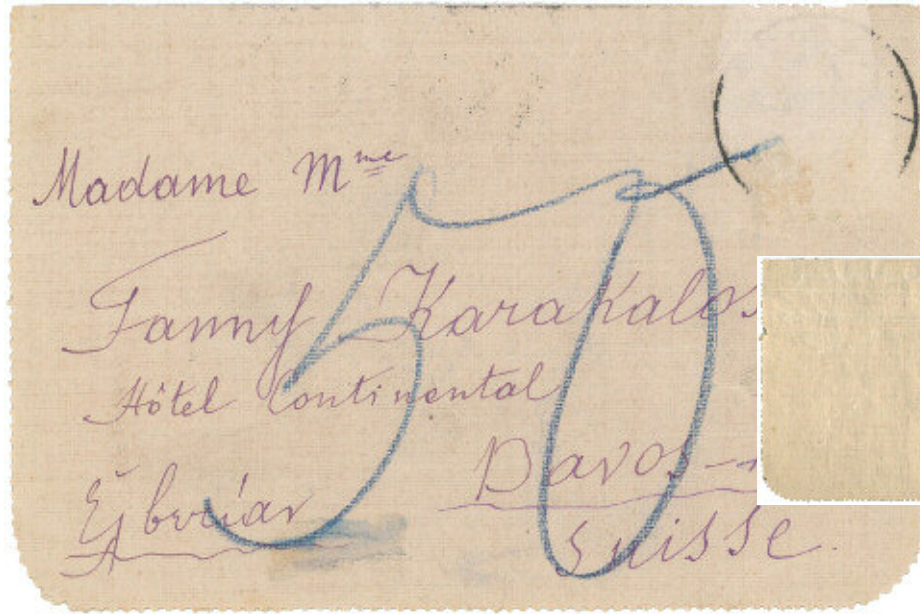 Madame Mme
Fanny Karakalos
Hôtel Continental
Davos-
Suisse.
50